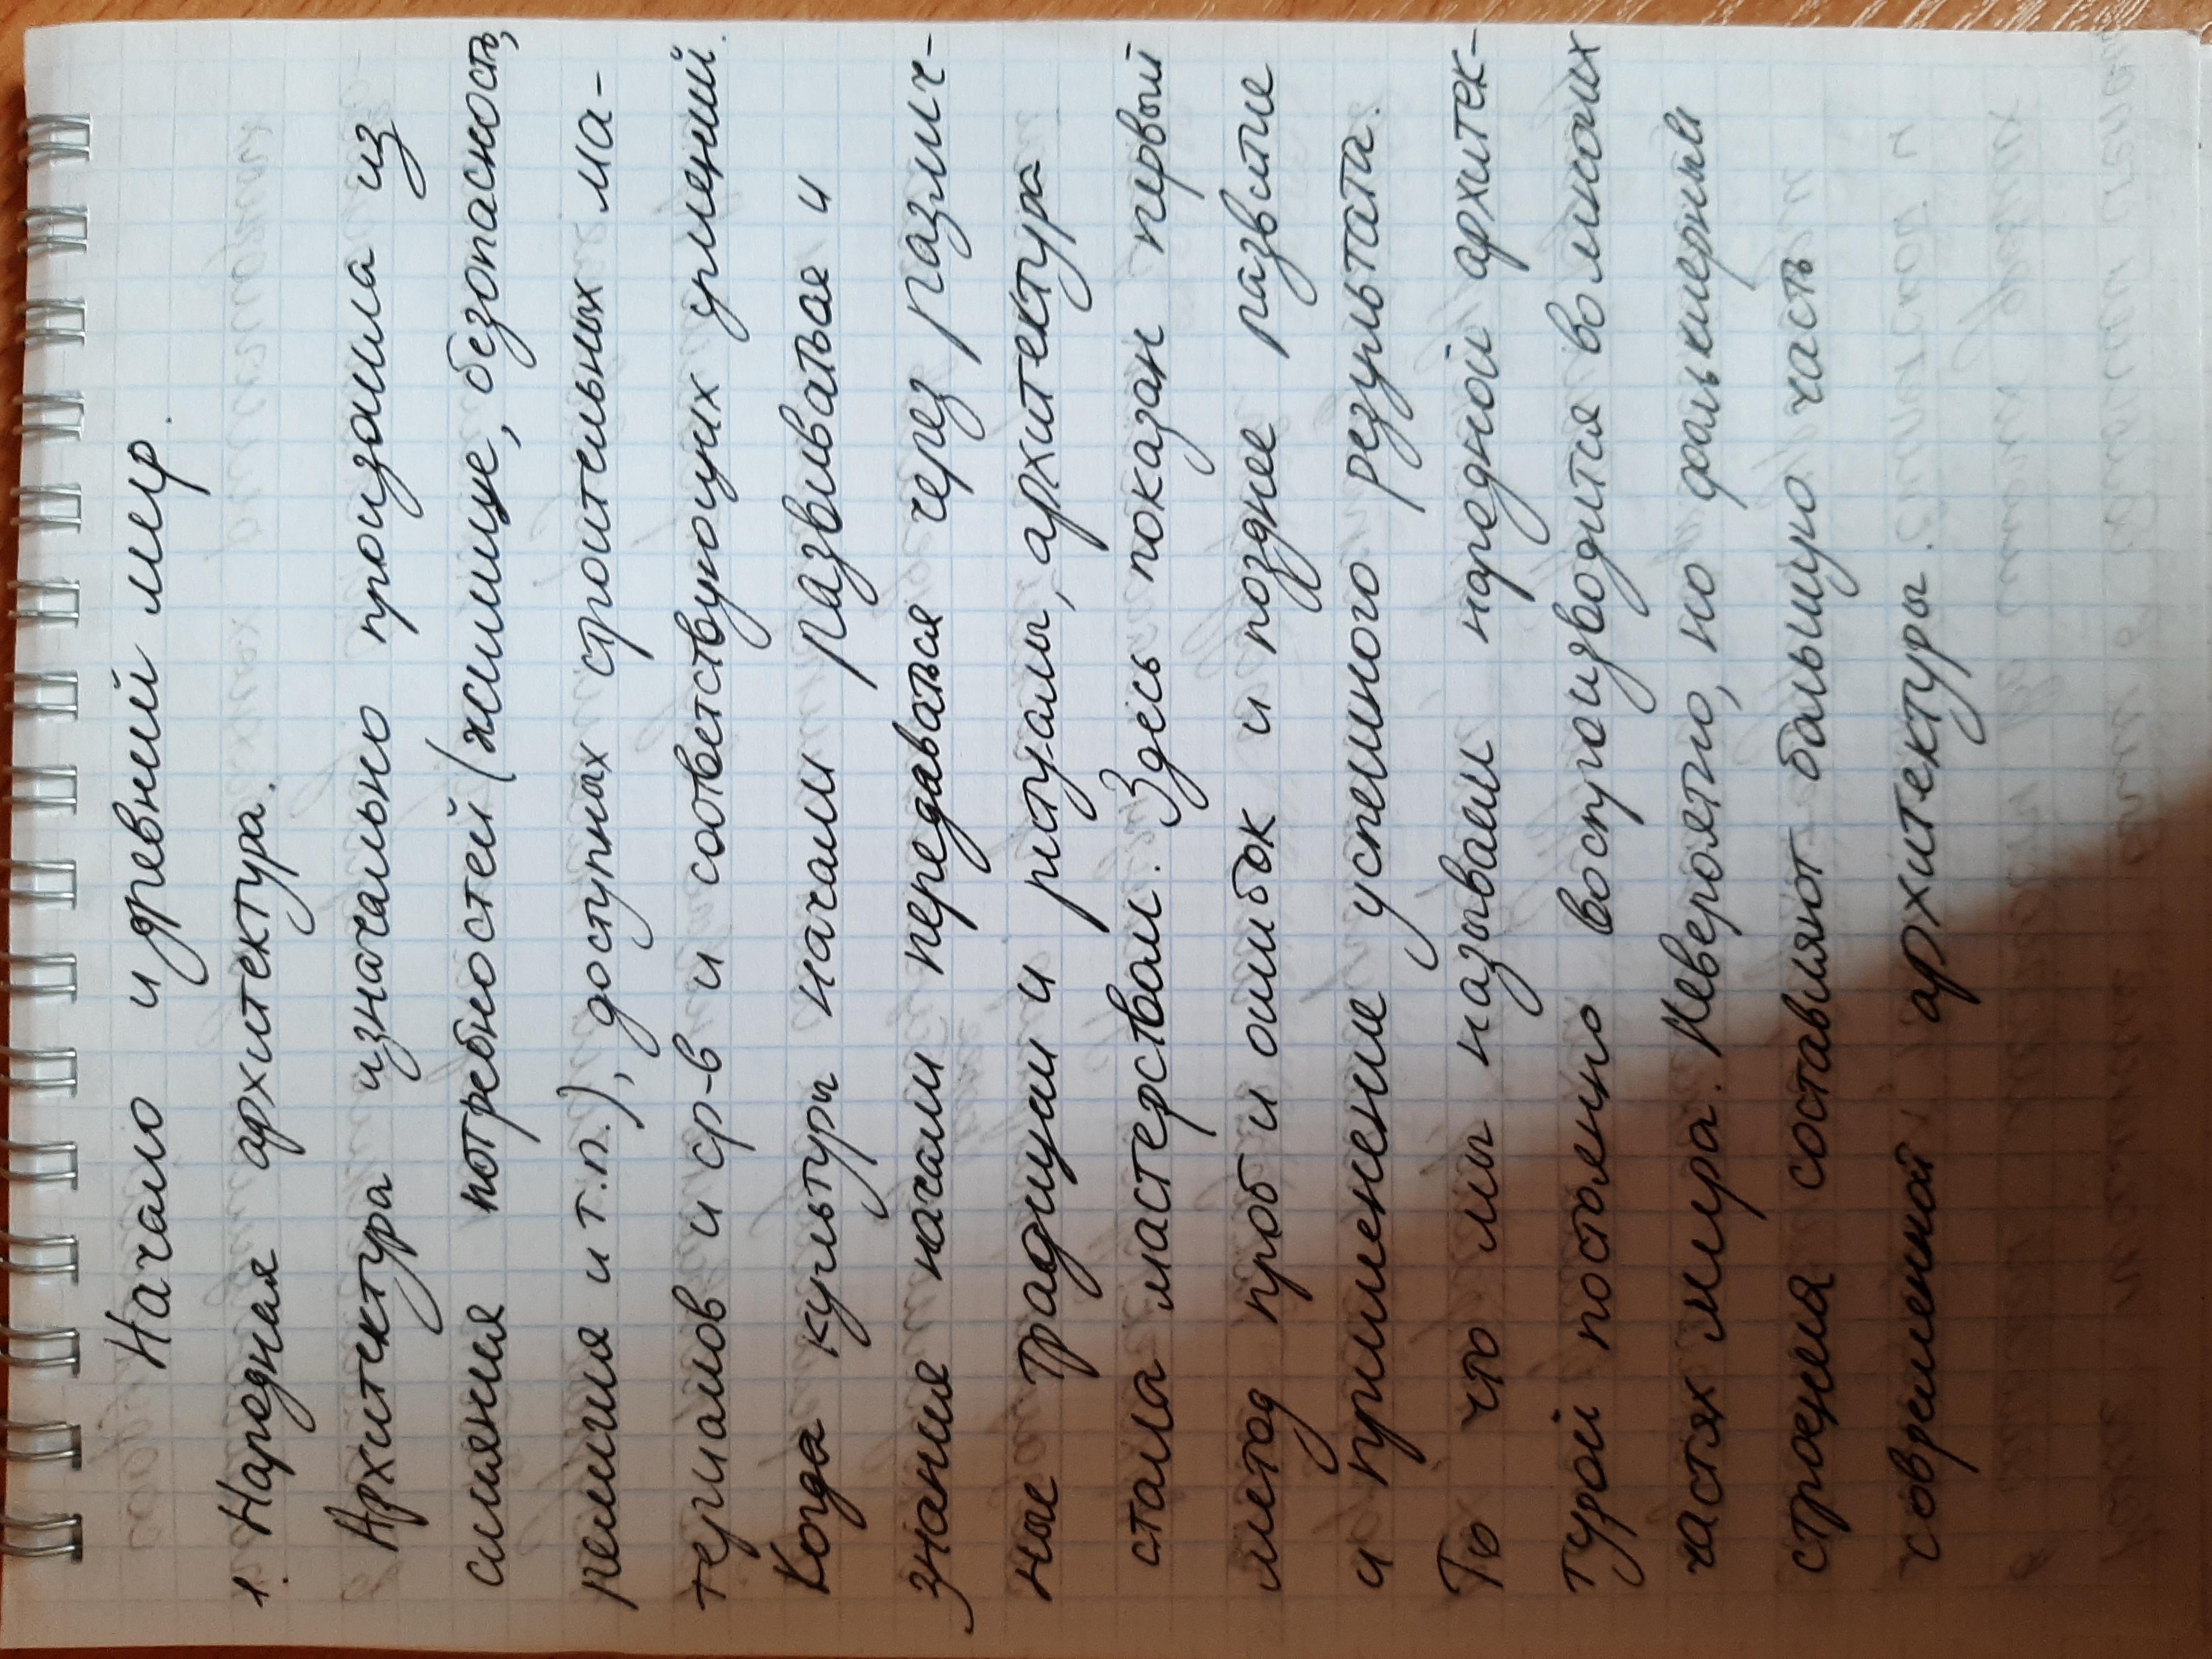 Начало и древний мир.
1. Народная архитектура.
Архитектура изначально произошла из
слияния потребностей (жилище, безопасность,
религия и т.п.), доступных строительных ма-
териалов и ср-в и соответствующих умений.
Когда культуры начали развиватьая и
знания начали передаваться через различ-
ные традиции и ритуалы, архитектура
стала мастерством. Здесь показан первый
метод проб и ошибок и позднее развитие
и применение успешного результата.
То что мы называем народной архитек-
турой постоянно воспроизводится во многих
частях мира. Невероятно, но фольклерныя
строения составляют большую часть
современной архитектуры.